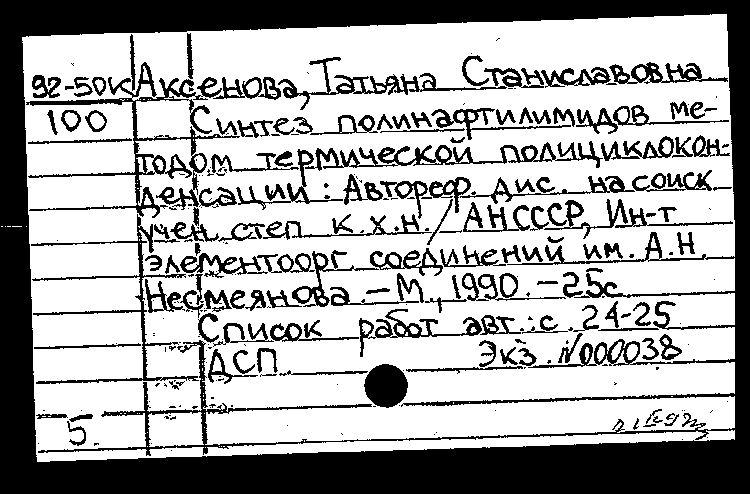 92-50К Аксенова, Татьяна Станиславовна
100 Синтез полинафтилимидов ме-
тодом термической полициклокон-
денсации: Автореф. дис. на соиск.
учен. степ. к.х.н. / АН СССР, Ин-т
элементоорг. соединений им. А.Н.
Несмеянова. - М., 1990. - 25с.
Список работ авт.: с. 24-25
ДСП Экз. №000038
5.